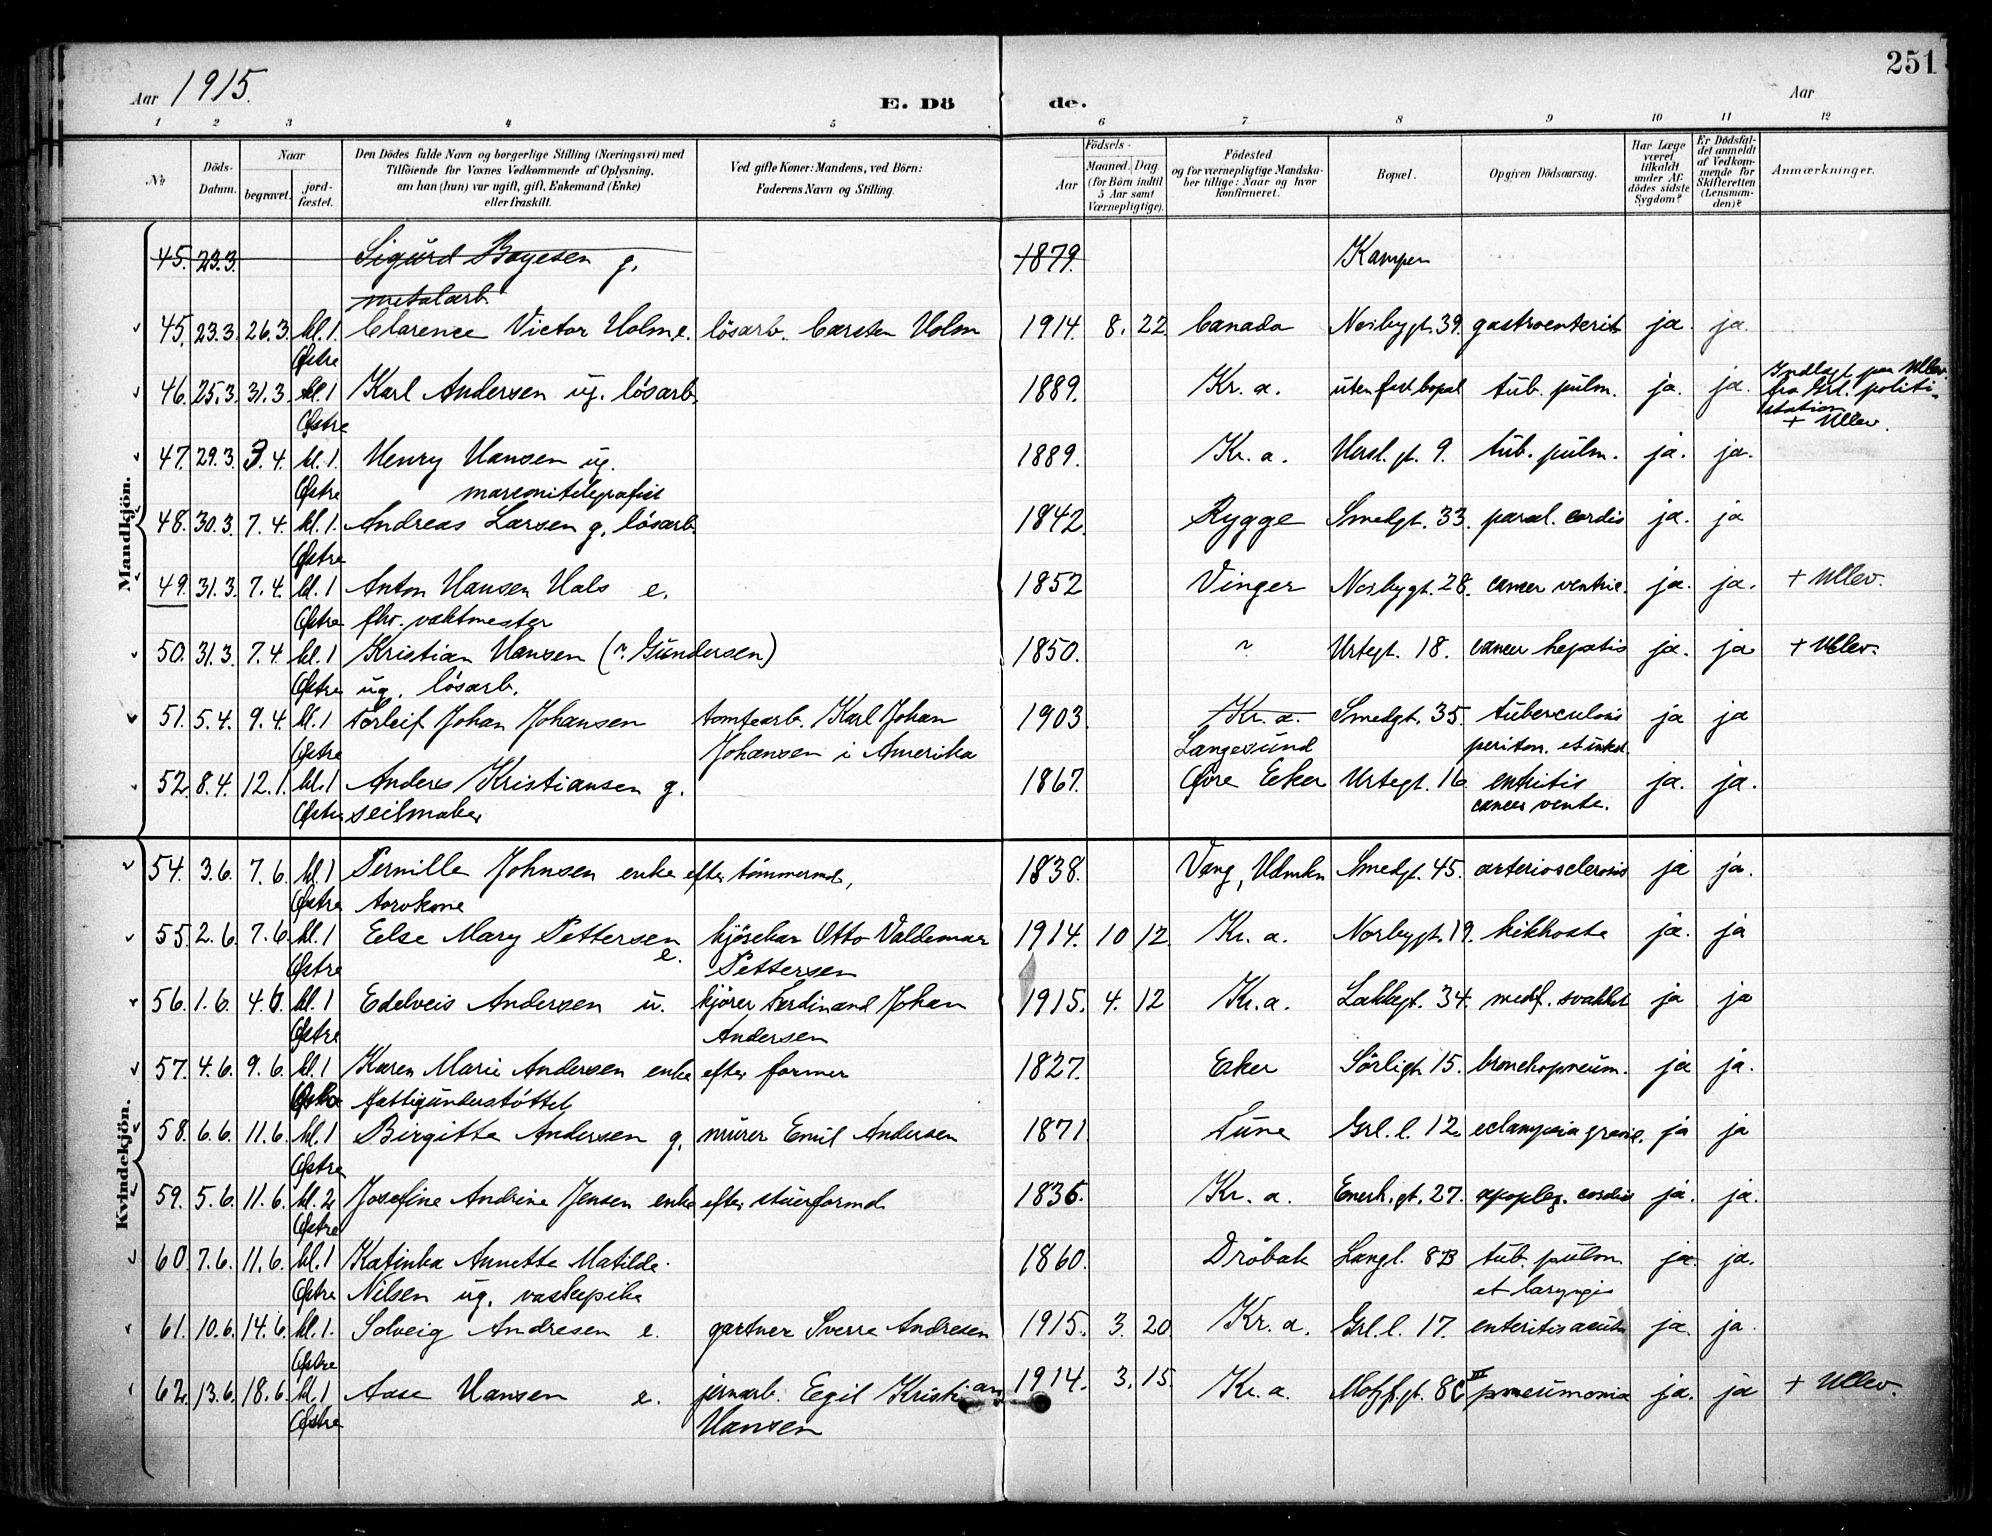 251
Aar 1915.
E. Dö de.
Aar
1 2 3 4 5 6 7 8 9 10 11 12
No
Döds-Datum.
Naar
begravet.
jord-fæstet.
Den Dödes fulde Navn og borgerlige Stilling (Næringsvei) med
Tilföiende for Voxnes Vedkommende af Oplysning,
om han (hun) var ugift, gift, Enkemand (Enke)
eller fraskilt.
Ved gifte Koner: Mandens, ved Börn:
Faderens Navn og Stilling.
Födsels-
Aar
Maaned. Dag.
(for Börn indtil
5 Aar samt
Værnepligtige).
Födested
og for værnepligtige Mandska-
ber tillige: Naar og hvor
konfirmeret.
Bopæl.
Opgiven Dödsaarsag.
Har Læge
været
tilkaldt
under Af-
dödes sidste
Sygdom?
Er Dödsfal-
det anmeldt
af Vedkom-
mende for
Skifteretten
(Lensman-
den)?
Anmærkninger.
Mandkjön.
45. 23.3. Sigurd Bøyesen g. 1879. Kampen
metalarb.
45. 23.3. 26.3. kl. 1 Clarence Victor Holm e. lösarb. Carsten Holm 1914. 8. 22 Canada Norbygt. 39. gastroenterit ja. ja.
Østre
46. 25.3. 31.3. kl. 1 Karl Andersen ug. lösarb. 1889. Kr. a. uten fast bopæl tub. pulm. ja. ja. Indlagt paa Ullev.
Østre fra Grl. politi-
station
+ Ullev.
47. 29.3. 3.4. kl. 1. Henry Hansen ug. 1889. Kr. a. Hersl. gt. 9. tub. pulm. ja. ja.
Østre marconitelegrafist
48. 30.3. 7.4. kl. 1. Andreas Larsen g. lösarb. 1842. Rygge Smedgt. 33. paral. cordis ja. ja
Østre
49. 31.3. 7.4. kl. 1 Anton Hansen Hals e. 1852 Vinger Norbygt. 28. cancer ventric. ja. ja. + Ullev.
Østre fhv. vaktmester
50. 31.3. 7.4. kl. 1 Kristian Hansen (r. Gundersen) 1850. Urtegt. 18. cancer hepatis ja. ja + Ullev.
Østre ug. lösarb.
51. 5.4. 9.4. kl. 1 Torleif Johan Johansen tomtearb. Karl Johan 1903 Kr. a. Smedgt. 35. tuberculosis ja ja
Østre Johansen i Amerika Langesund
52. 8.4. 12. kl. 1 Anders Kristiansen g. 1867. Øvre Eeker Urtegt. 16 ja. ja.
Østre seilmaker cancer
Kvindekjön.
54. 3.6. 7.6. kl. 1 Pernille Johnsen enke efter tömmermd, 1838. Vang, Hdmkn Smedgt. 45. arteriosclerosis ja ja.
Østre torvkone
55. 2.6. 7.6. kl. 1 Else Mary Pettersen kjösekar Otto Valdemar 1914. 10 12 Kr. a. Norbygt. 19. kikhoste ja. ja
Østre e. Pettersen
56. 1.6. 4.6. kl. 1 Edelveis Andersen u. kjörer Ferdinand Johan 1915. 4. 12 Kr. a. Lakkegt. 34. medf. svakhet ja ja
Østre Andersen
57. 4.6. 9.6. kl. 1 Karen Marie Andersen enke efter former 1827. Eker Sörligt. 15. bronchopneum. ja ja.
Østre fattigunderstöttet
58. 6.6. 11.6. kl. 1 Birgitte Andersen g. murer Emil Andersen 1871 Tune Grl. l. 12 eclampsia gravid. ja ja
Østre
59. 5.6. 11.6. kl. 2 Josefine Andrine Jensen enke efter stuerformd. 1836. Kr. a. Enerh. gt. 27. apoplex. cordis ja. ja.
Østre
60. 7.6. 11.6. kl. 1 Katinka Annette Matilde 1860. Dröbak Langl. 8B tub. pulm. ja. ja.
Østre Nilsen ug. vaskepike et laryngis
61. 10.6. 14.6. kl. 1. Solveig Andresen e. gartner Sverre Andresen 1915. 3. 20 Kr. a. Grl. l. 17. enteritis acuta ja. ja.
Østre
62. 13.6. 18.6. kl. 1 Aase Hansen e. jernarb. Egil Kristian 1914. 3. 15. Kr. a. Motzf. gt. 8C pneumonia ja. ja + Ullev.
Østre Hansen